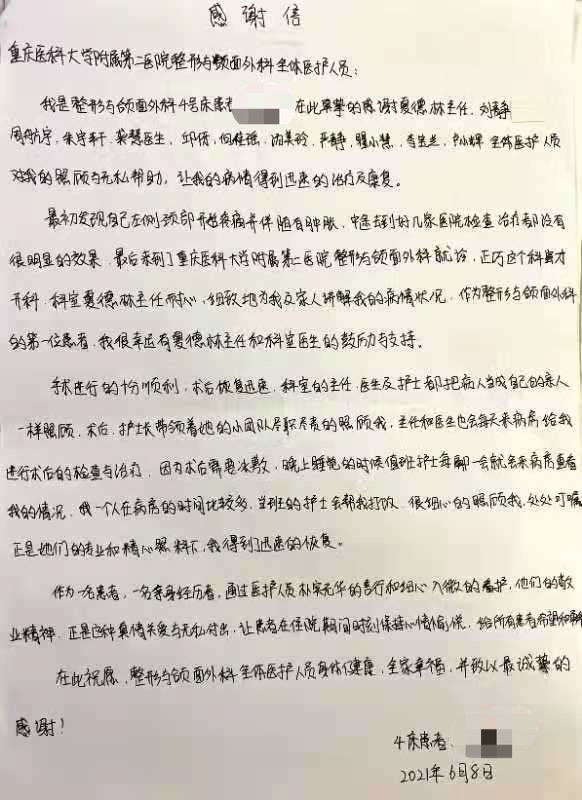 感谢信
重庆医科大学附属第二医院整形与颌面外科全体医护人员：
我是整形与颌面外科4号床患者 在此真挚的感谢夏德林主任、刘静
周航宇、朱宇轩、龚慧医生、邱侨、何 、沈美玲、严静、程小慧、李 兰、卢小辉全体医护人员
对我的照顾与无私帮助，让我的病情得到迅速的治疗及康复。
最初发现自己左侧颈部开始疼痛并伴随有肿胀，中途去到好几家医院检查治疗都没有
很明显的效果，最后来到了重庆医科大学附属第二医院整形与颌面外科就诊，正巧这个科室才
开科，科室夏德林主任耐心、细致地为我及家人讲解我的病情状况，作为整形与颌面外科
的第一位患者，我很幸运有夏德林主任和科室医生的鼓励与支持。
手术进行的十分顺利，术后恢复迅速，科室的主任、医生及护士都把病人当成自己的亲人
一样照顾，术后，护士长带领着她的小团队尽职尽责的照顾我，主任和医生也会每天来病房给我
进行术后的检查与治疗，因为术后需要冰敷，晚上睡觉的时候值班护士每聊一会就会来病房查看
我的情况，我一个人在病房的时间比较多，当班的护士会帮我打饭、很细心的照顾我，处处叮嘱
正是她们的专业和精心照料下，我得到了迅速的恢复。
作为一名患者，一名亲身经历者，通过医护人员朴实无华的言行和细心入微的看护，他们的敬
业精神，正是这种真情关爱与无私付出，让患者在住院期间时刻保持心情愉悦，给所有患者希望和
在此祝愿，整形与颌面外科全体医护人员身体健康，全家幸福，并致以最诚挚的
感谢！
4床患者、
2021年6月8日